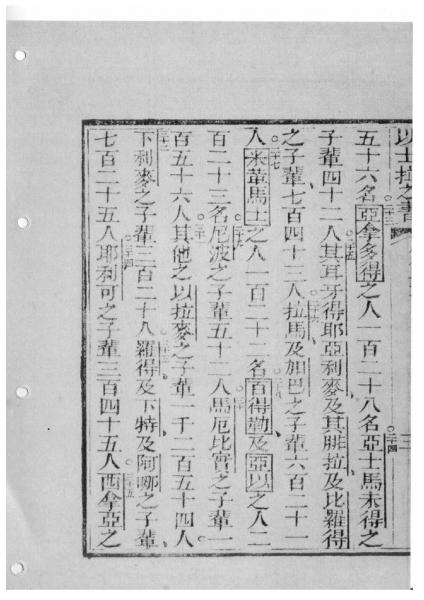 以士拉之書
五十六名亞拿多得之人一百二十八名亞士馬未得之
子輩四十二人其耳牙得耶亞利麥及其腓拉及比羅得
之子輩七百四十三人拉馬及加巴之子輩六百二十一
人米葷馬士之人一百二十二名百得勒及亞以之人二
百二十三名尼波之子輩五十二人馬厄比實之子輩一
百五十六人其他之以拉麥之子輩一千二百五十四人
下利麥之子輩三百二十人羅得及下特及阿哪之子輩
七百二十五人耶利可之子輩三百四十五人西拿亞之